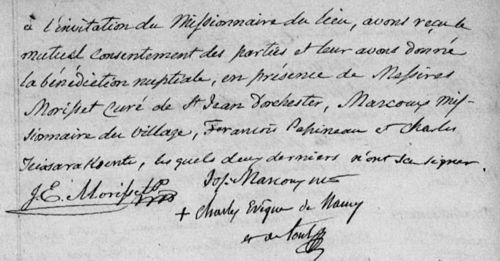 à l'invitation du Missionnaire du lieu, avons reçu le
mutuel consentement des parties et leur avons donné
la bénédiction nuptiale, en présence de Messires
Morisset curé de St Jean Dorchester, Marcoux mis-
sionnaire du village, Francois Papineau et Charles
lesquels deux derniers n'ont su signer.
J. E. Morisset Ptre
Jos. Marcoux ptre
+ Charles Evêque de Nancy
et de Toul